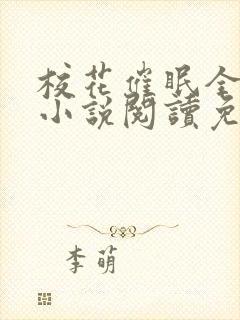 校花催眠全
小說閱讀免
李萌